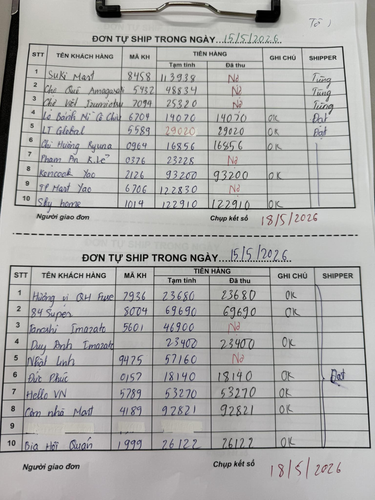 Tờ 1
ĐƠN TỰ SHIP TRONG NGÀY 15/5/2026
STT TÊN KHÁCH HÀNG MÃ KH TIỀN HÀNG GHI CHÚ SHIPPER
Tạm tính Đã thu
1 Suki Mart 8458 113938 Nợ Tùng
2 Chợ Quê Amagasaki 5432 48834 Nợ Tùng
3 Chợ Việt Izumiotsu 7094 25320 Nợ Tùng
4 Lê Bánh Mì Cô Chủ 6704 14070 14070 OK Đạt
5 LT Global 5589 29020 29020 OK Đạt
6 Chị Hương Kyuna 0964 16856 16856 OK
7 Phạm An K.Lẻ 0376 23228 Nợ
8 Kencook Yao 2126 93200 93200 OK
9 TP Mart Yao 6706 122830 Nợ
10 Sky home 1014 122910 122910 OK
Người giao đơn Chụp kết sổ 18/5/2026
ĐƠN TỰ SHIP TRONG NGÀY 15/5/2026
STT TÊN KHÁCH HÀNG MÃ KH TIỀN HÀNG GHI CHÚ SHIPPER
Tạm tính Đã thu
1 Hương vị QH Fuse 7936 23680 23680 OK
2 84 Super 8004 69690 69690 OK
3 Tanashi Imazato 5601 46900 Nợ
4 Duy Anh Imazato 23400 23400 OK
5 Nhật Linh 9475 57160 Nợ
6 Đức Phúc 0157 18140 18140 OK Đạt
7 Hello VN 5789 53270 53270 OK
8 Căn nhà Mart 4189 92821 92821 OK
9
10 Bia Hơi Quán 1999 26122 26122 OK
Người giao đơn Chụp kết sổ 18/5/2026